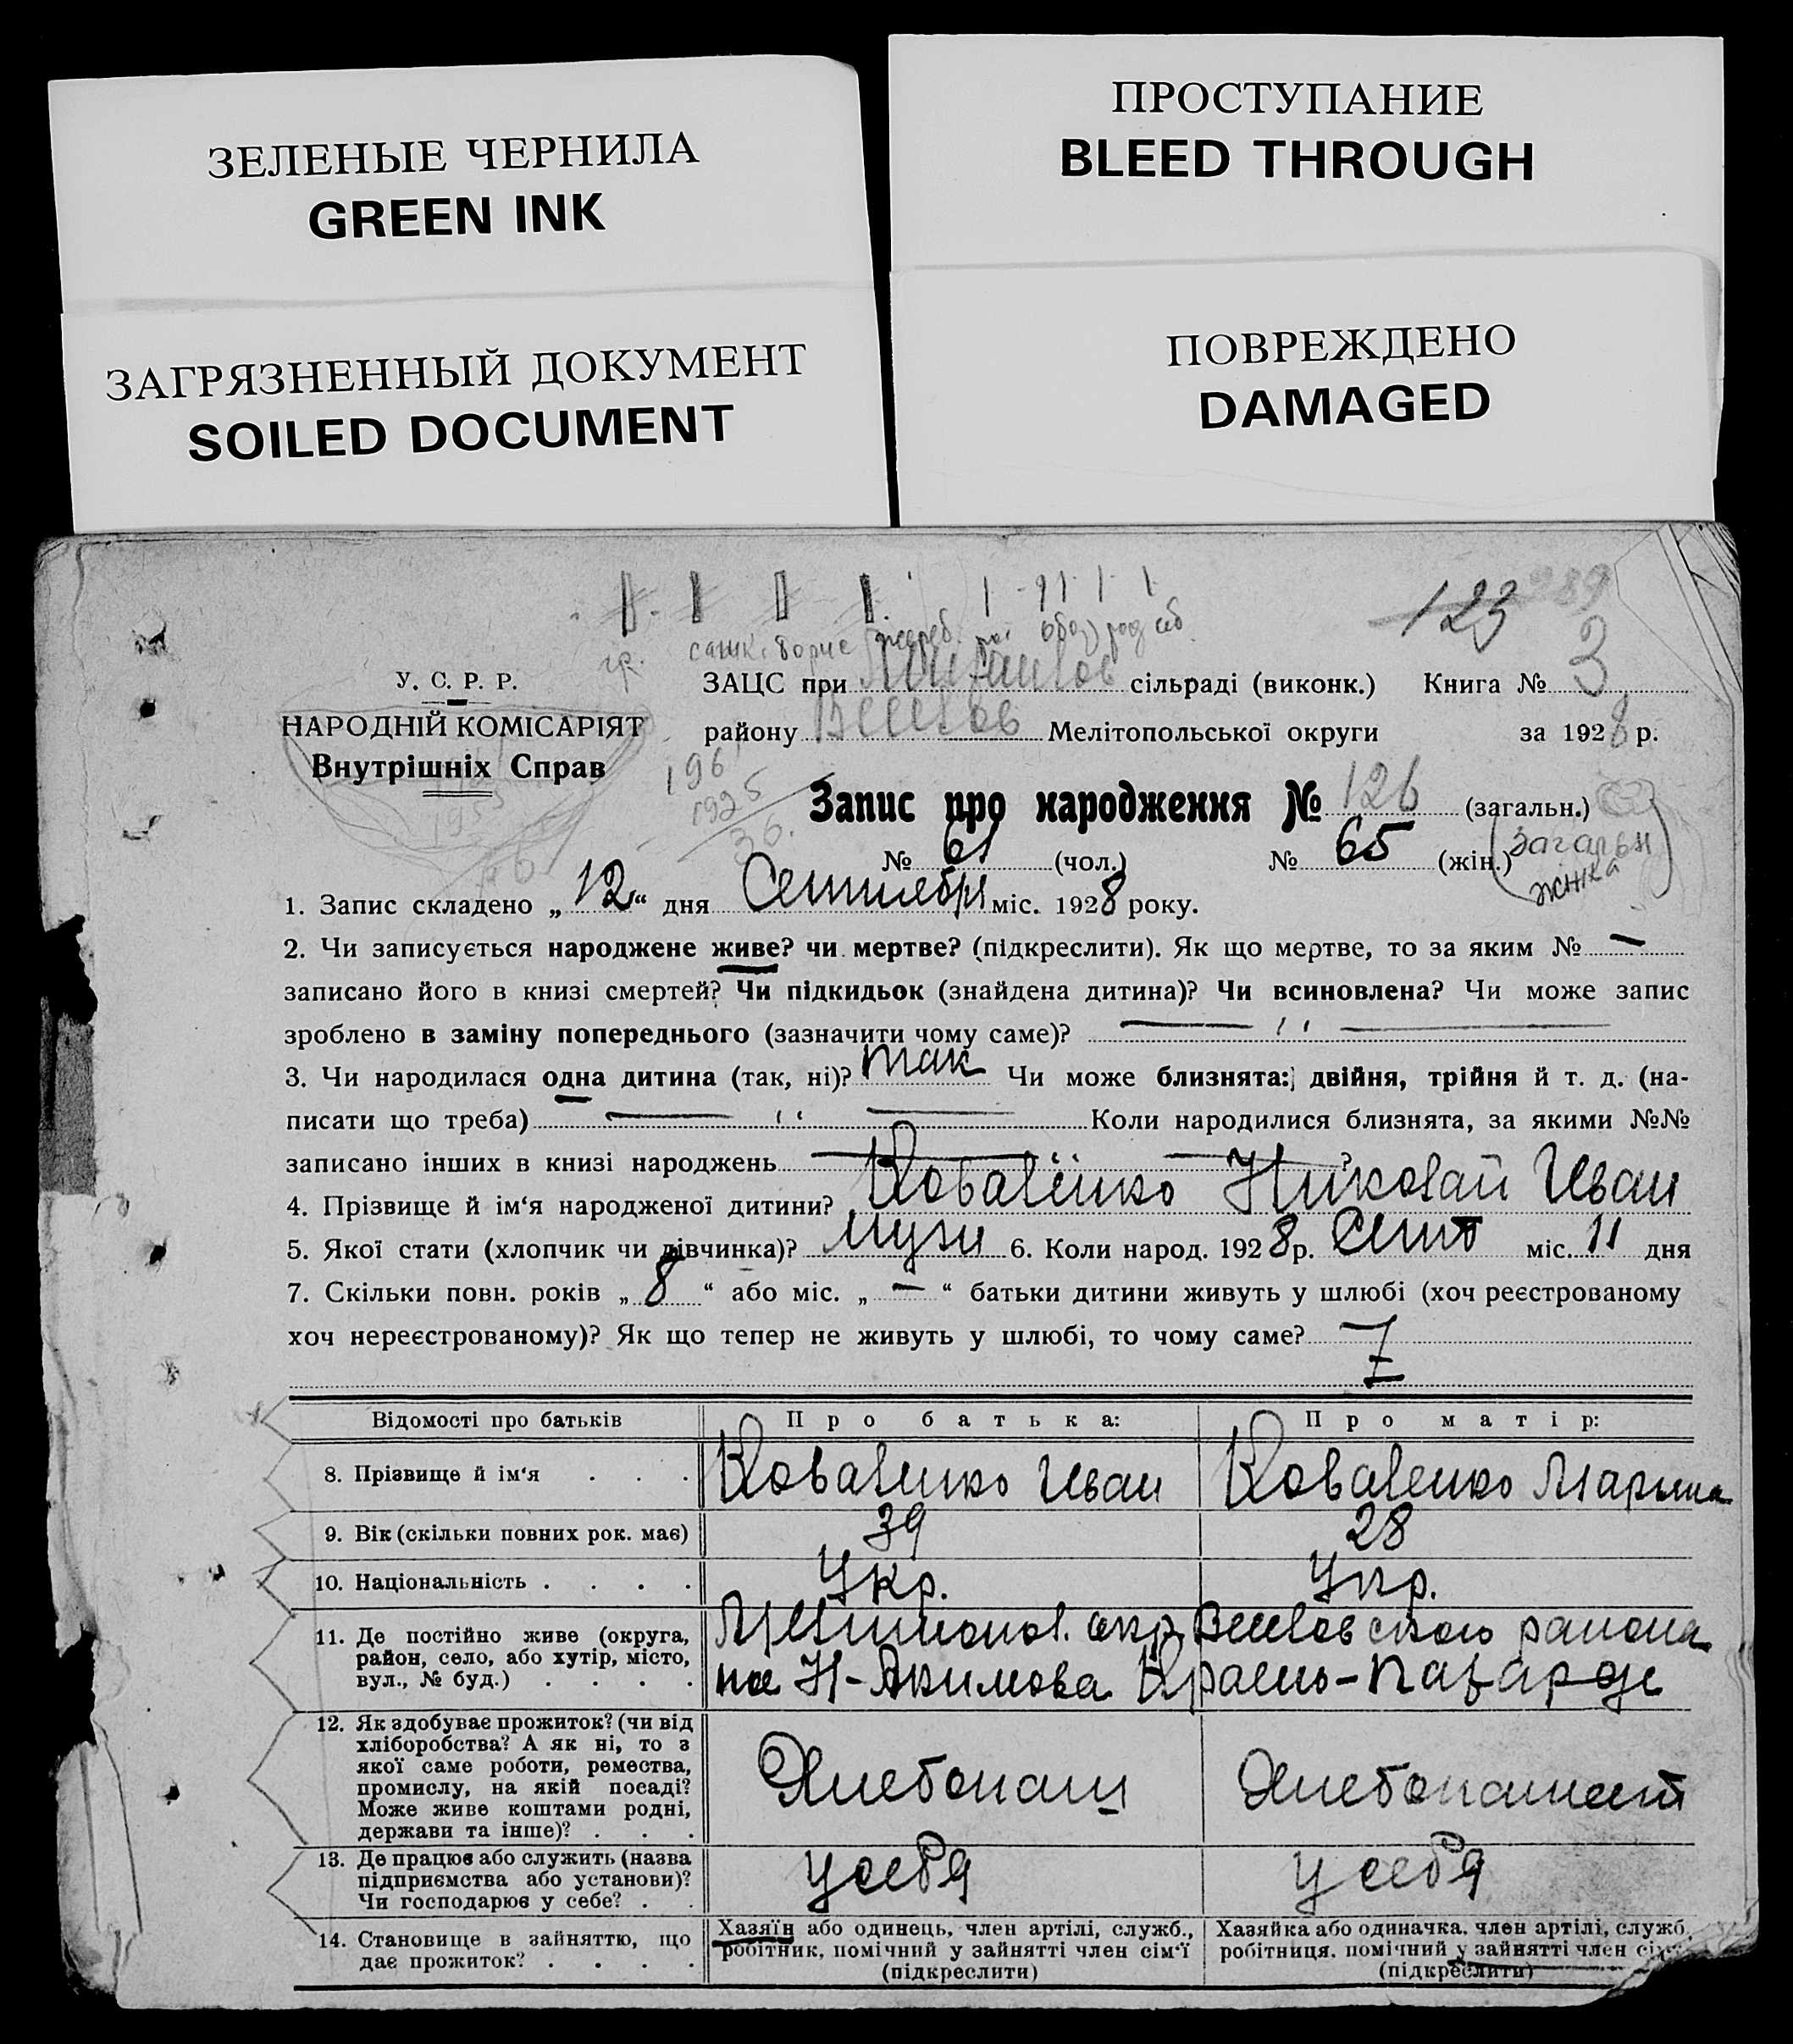 ЗЕЛЕНЫЕ ЧЕРНИЛА
GREEN INK
ПРОСТУПАНИЕ
BLEED THROUGH
ЗАГРЯЗНЕННЫЙ ДОКУМЕНТ
SOILED DOCUMENT
ПОВРЕЖДЕНО
DAMAGED
123
У. С. Р. Р.
НАРОДНІЙ КОМІСАРІЯТ
Внутрішніх Справ
ЗАЦС при сільраді (виконк.) Книга № 3
району Мелітопольської округи за 1928 р.
196
1925
36.
Запис про народження № 126 (загальн.)
№ 61 (чол.) № 65 (жін.) (загальн
жінка)
1. Запис складено „12“ дня Сентября міс. 1928 року.
2. Чи записується народжене живе? чи мертве? (підкреслити). Як що мертве, то за яким № —
записано його в книзі смертей? Чи підкидьок (знайдена дитина)? Чи всиновлена? Чи може запис
зроблено в заміну попереднього (зазначити чому саме)? — ʺ —
3. Чи народилася одна дитина (так, ні)? так Чи може близнята: двійня, трійня й т. д. (на-
писати що треба) — ʺ — Коли народилися близнята, за якими №№
записано інших в книзі народжень — ʺ — ?
4. Прізвище й ім‘я народженої дитини? Коваленко Николай Иван
5. Якої стати (хлопчик чи дівчинка)? Мужи 6. Коли народ. 1928 р. Сент міс. 11 дня
7. Скільки повн. років „8“ або міс. „—“ батьки дитини живуть у шлюбі (хоч реєстрованому
хоч нереєстрованому)? Як що тепер не живуть у шлюбі, то чому саме?
Відомості про батьків Про батька: Про матір:
8. Прізвище й ім‘я . . . Коваленко Иван Коваленко Марина
9. Вік (скільки повних рок. має) 39 28
10. Національність . . . . Укр. Укр.
11. Де постійно живе (округа, район, село, або хутір, місто, вул., № буд.) . . . .
Мелитопол. окр Веселовского района
Н-Акимовка
12. Як здобуває прожиток? (чи від хліборобства? А як ні, то з якої саме роботи, ремества, промислу, на якій посаді? Може живе коштами родні, держави та інше)? . . .
Хлебопаш Хлебопашест
13. Де працює або служить (назва підприємства або установи)? Чи господарює у себе? . .
у себя у себя
14. Становище в зайняттю, що дає прожиток? . . . .
Хазяїн або одинець, член артілі, служб., робітник, помічний у зайнятті член сім‘ї (підкреслити)
Хазяйка або одиначка, член артілі, служб. робітниця, помічний у зайнятті член (підкреслити)